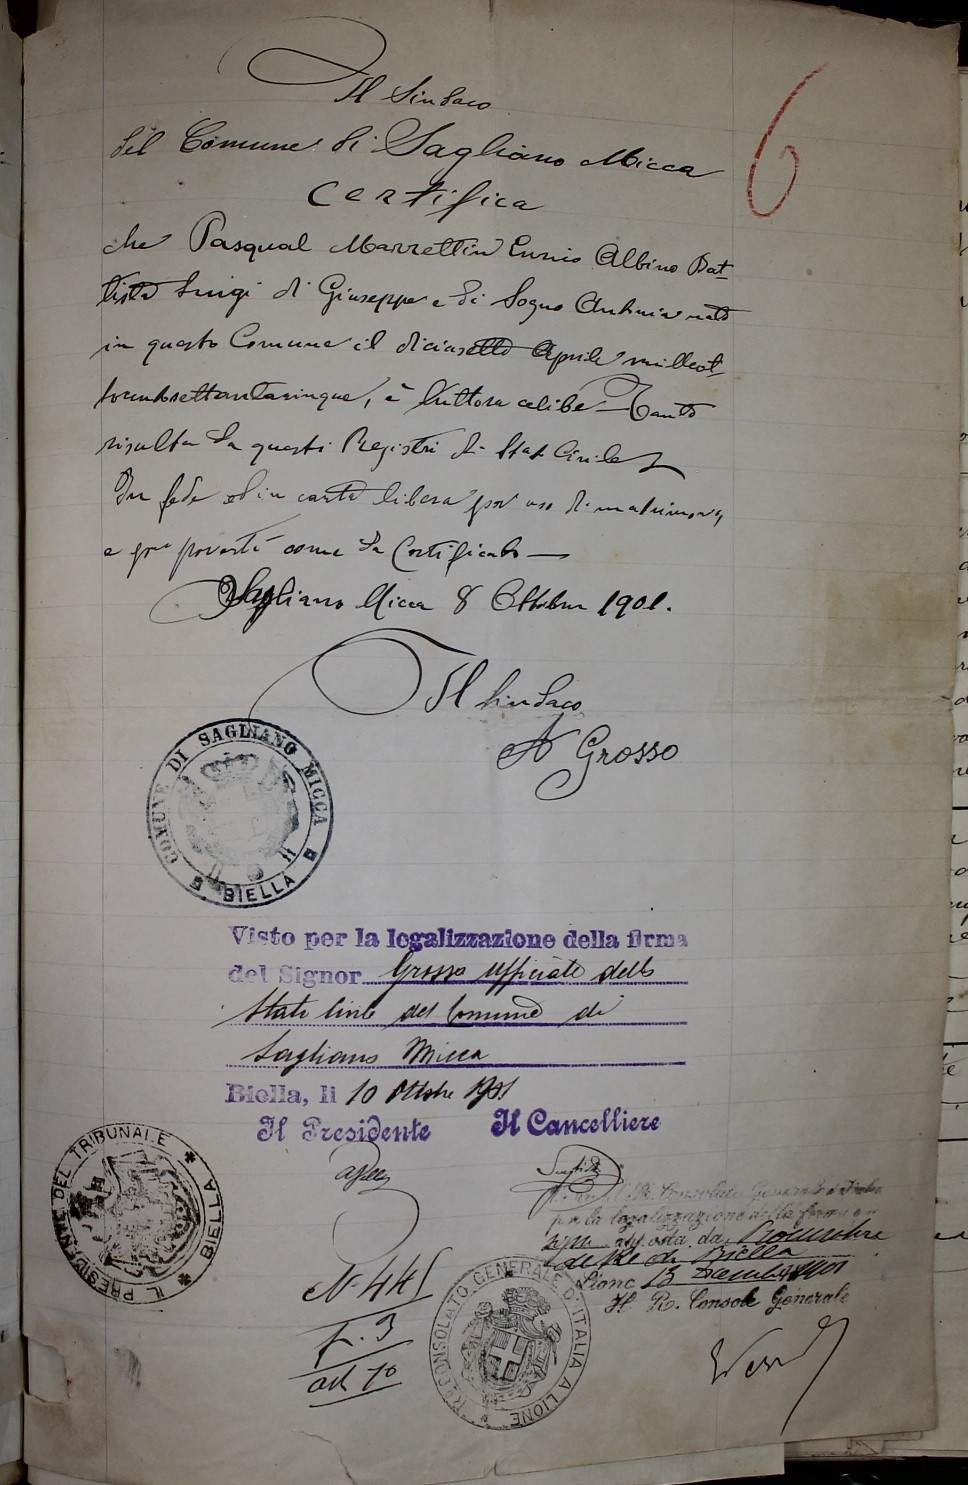 6
Il Sindaco
del Comune di Sagliano Micca
Certifica
che Pasqual Marzettin Ennio Albino Bat-
tista Luigi di Giuseppe e di Sogno Antonia nato
in questo Comune il diciasette Aprile milleot-
tocentosettantacinque, è tuttora celibe - Tanto
risulta da questi Registri di Stato Civile
In fede ed in carta libera per uso di matrimonio,
e per povertà come da Certificato —
Sagliano Micca 8 Ottobre 1901.
Il Sindaco
A Grosso
COMUNE DI SAGLIANO MICCA
BIELLA
Visto per la legalizzazione della firma
del Signor Grosso Ufficiale dello
Stato Civile del Comune di
Sagliano Micca
Biella, li 10 Ottobre 1901
Il Presidente Il Cancelliere
IL PRESIDENTE DEL TRIBUNALE
BIELLA
R. Consolato Generale d'Italia
per la legalizzazione della firma
apposta da Procuratore
del Re di Biella
Lione 13 1901
Il R. Console Generale
N. 445
F. 3
art 7°
Ro CONSOLATO GENERALE D'ITALIA A LIONE